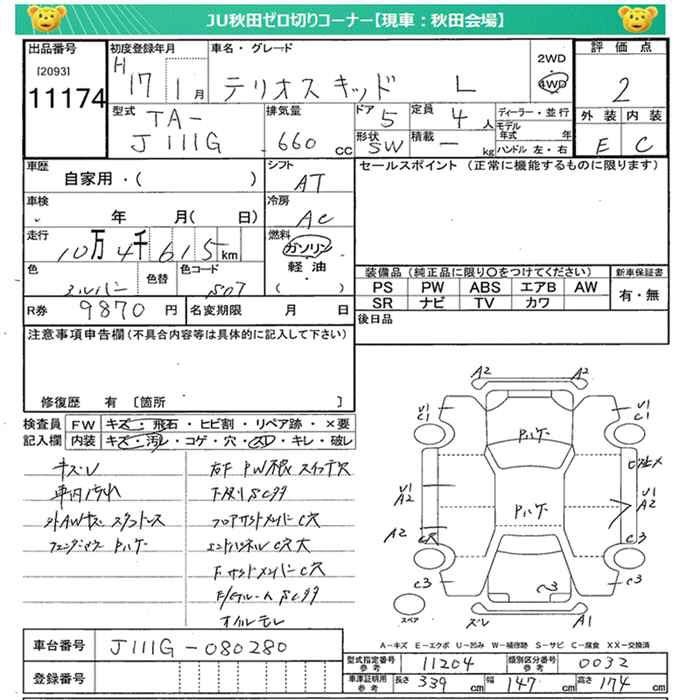 JU秋田ゼロ切りコーナー【現車：秋田会場】
出品番号
[2093]
11174
初度登録年月
H 17 1月
車名・グレード
テリオスキッド L
2WD
4WD
評価点
2
型式
TA-
J111G
排気量
660 cc
ドア
5
定員
4人
形状
SW
積載
— kg
ディーラー・並行
モデル年式 年
ハンドル 左・右
外装 内装
E C
車歴
自家用・( )
シフト
AT
セールスポイント（正常に機能するものに限ります）
車検
年 月( 日)
冷房
AC
走行
10万4千615km
燃料
ガソリン
軽油
( )
色
シルバー
色替
色コード
S07
装備品（純正品に限り〇をつけてください）
新車保証書
PS PW ABS エアB AW
SR ナビ TV カワ
有・無
R券
9870円
名変期限 月 日
後日品
注意事項申告欄（不具合内容等は具体的に記入して下さい）
修復歴 有 [箇所 ]
検査員 FW キズ・飛石・ヒビ割・リペア跡・×要
記入欄 内装 キズ・汚レ・コゲ・穴・スレ・キレ・破レ
キズレ
車内汚れ
外AWキズ スタッドレス
右F PW根 スイッチ穴
下廻りSC錆
フロアサイドメンバーC穴
エンドパネルC穴大
F サイドメンバーC穴
オイルモレ
A2
A2
U1
C1
U1
C1
Pハゲ
U1
A2
U1
A2
Pハゲ
A2
C穴
C3
C3
C3
スペア
ズレ
A1
A－キズ E－エクボ U－凹み W－補修跡 S－サビ C－腐食 XX－交換済
車台番号
J111G-080280
登録番号
型式指定番号
参考
11204
類別区分番号
参考
0032
車庫証明用
参考
長さ 339 cm
幅 147 cm
高さ 174 cm